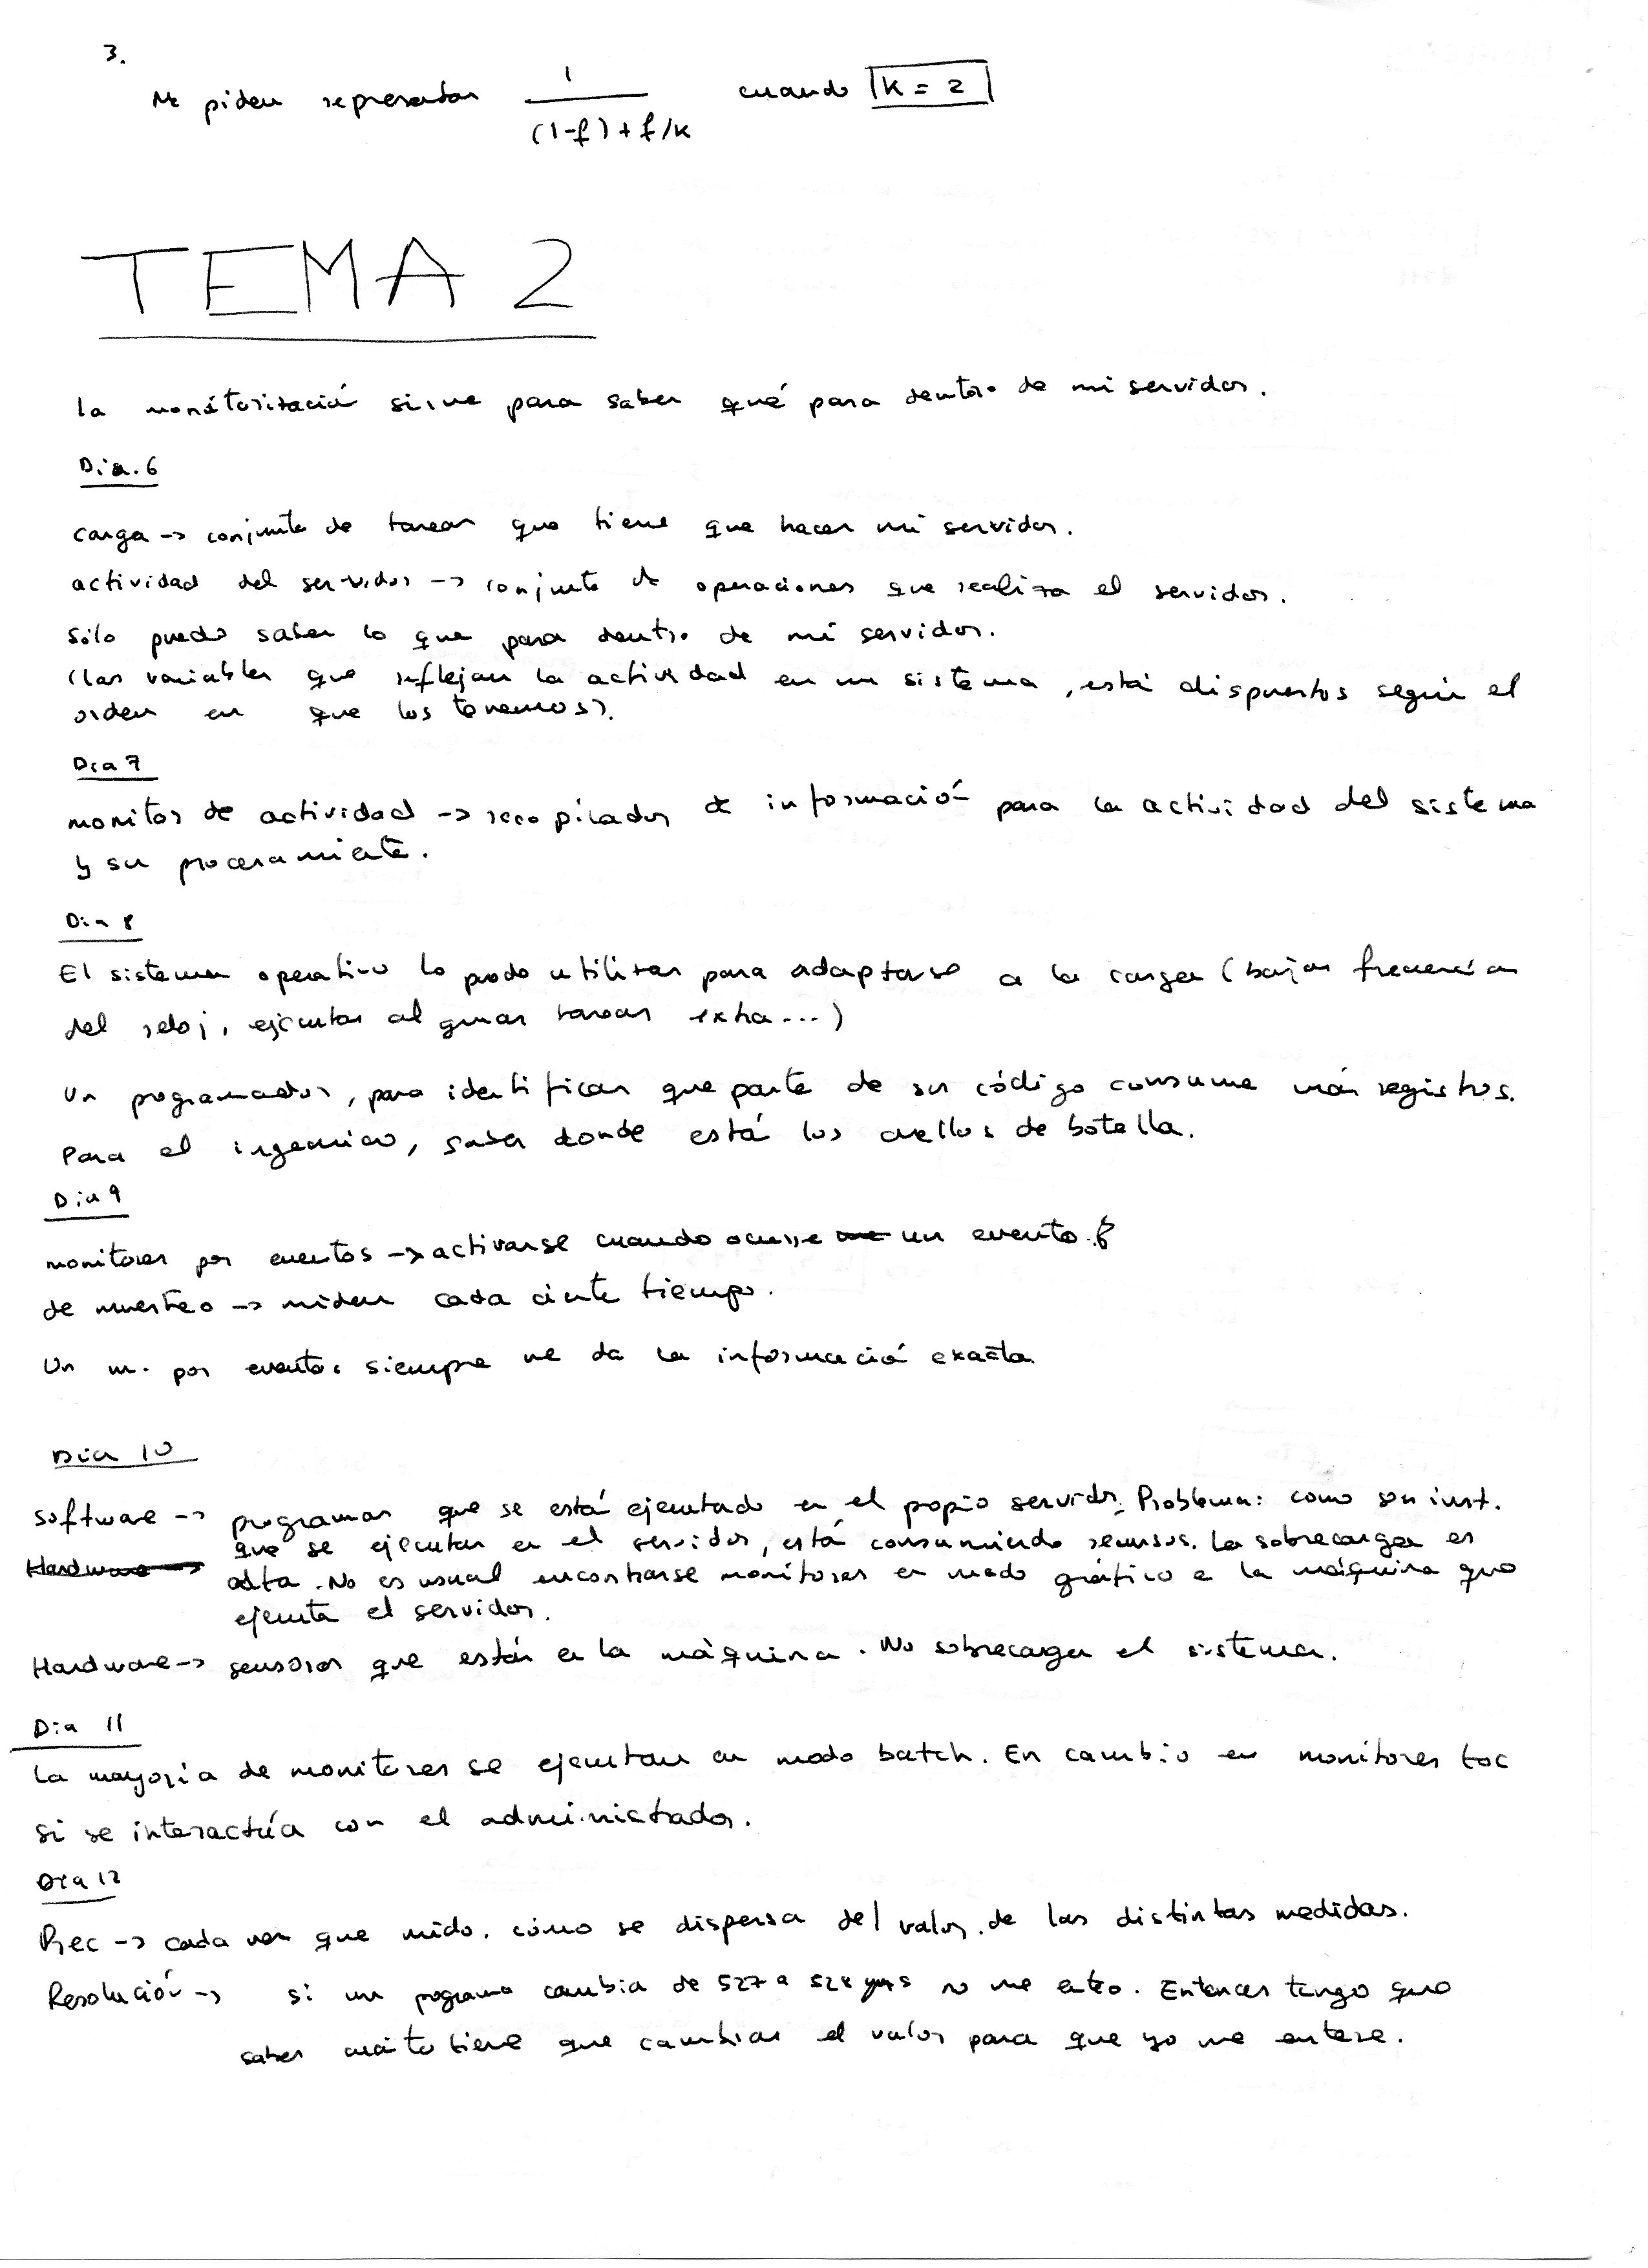 3.
Me piden representar 1 / ((1-f) + f/k) cuando k = 2
TEMA 2
La monitorizació sirve para saber qué pasa dentro de mi servidor.
Dia. 6
carga -> conjunto de tareas que tiene que hacer mi servidor.
actividad del servidor -> conjunto de operaciones que realiza el servidor.
Sólo puedo saber lo que pasa dentro de mi servidor.
(las variables que reflejan la actividad en un sistema, está dispuestos según el
orden en que los tenemos).
Dia 7
monitor de actividad -> recopilador de informació para la actividad del sistema
y su procesamiento.
Dia 8
El sistema operativo lo puedo utilizar para adaptarse a la carga (bajar frecuencia
del reloj, ejecutar algunas tareas extra...)
Un programador, para identificar que parte de su código consume más registros.
Para el ingeniero, saber donde está los cuellos de botella.
Dia 9
monitores por eventos -> activarse cuando ocurre un evento.
de muestreo -> miden cada cierto tiempo.
Un m. por eventos siempre me da la informació exacta
Dia 10
Software -> programas que se está ejecutado en el propio servidor. Problema: como son inst.
que se ejecutan en el servidor, está consumiendo recursos. La sobrecarga es
Hardware -> alta. No es usual encontrarse monitores en modo gráfico e la máquina que
ejecuta el servidor.
Hardware -> sensores que están en la máquina. No sobrecarga el sistema.
Dia 11
La mayoría de monitores se ejecutan en modo batch. En cambio en monitores toc
si se interactúa con el administrador.
Dia 12
Prec -> cada vez que mido. cómo se dispersa del valor de las distintas medidas.
Resolución -> si un programa cambia de 527 a 528 no me entero. Entonces tengo que
saber cuánto tiene que cambiar el valor para que yo me entere.